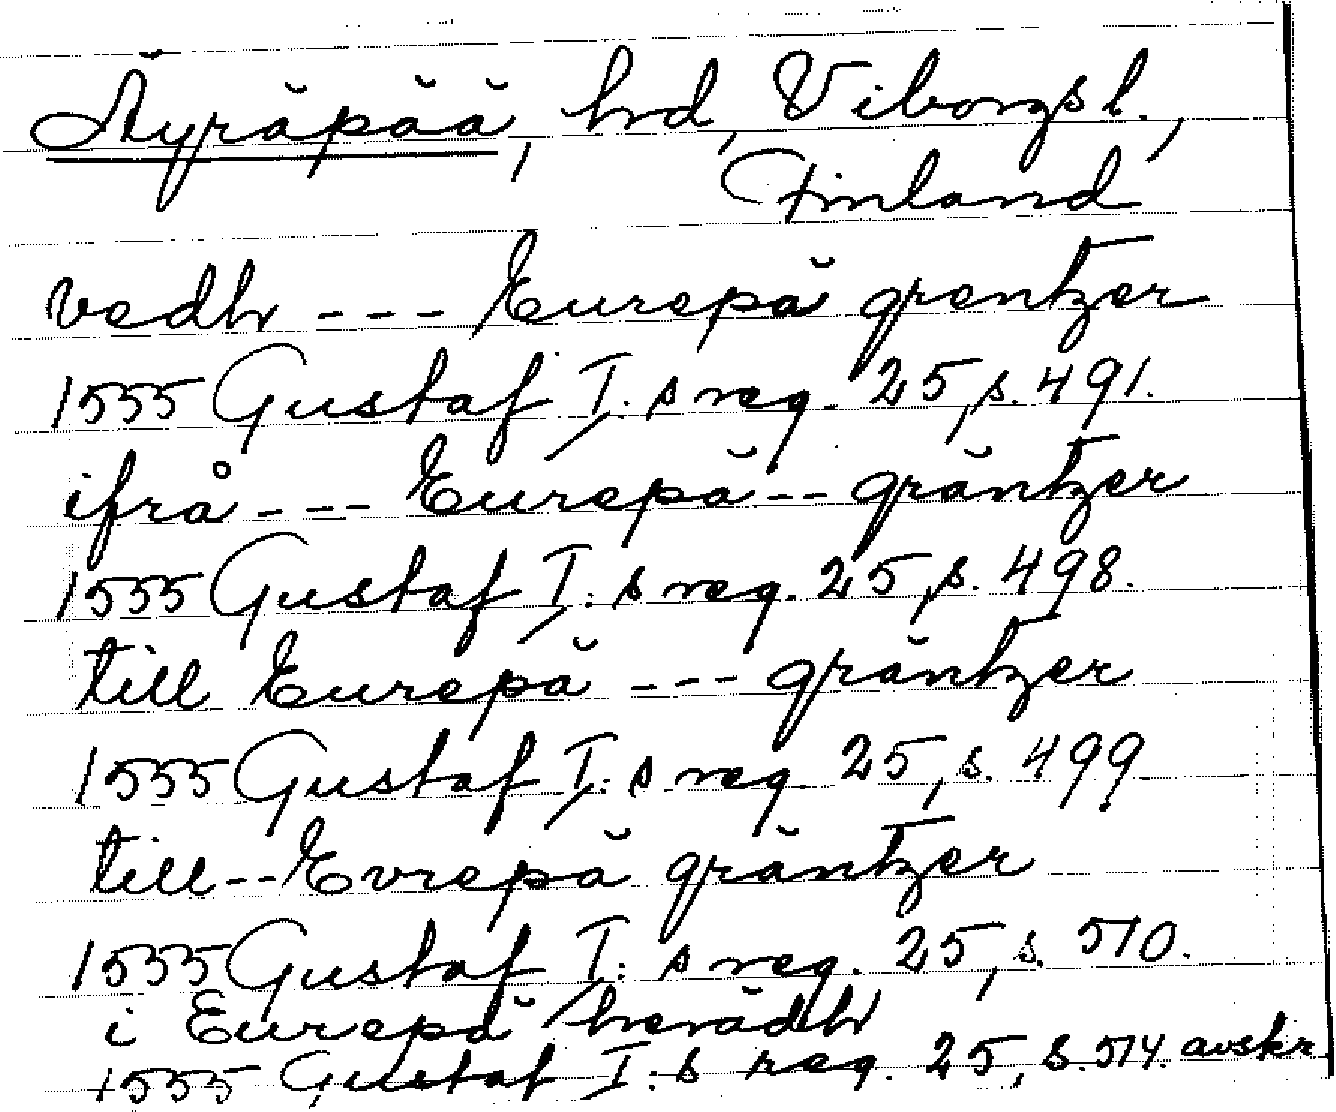 Äyräpää, hrd, Viborgs l.,
Finland
vedh --- Eurepä grentzer
1555 Gustaf I:s reg. 25, s. 491.
ifrå --- Eurepä -- gräntzer
1555 Gustaf I:s reg. 25, s. 498.
till Eurepä --- gräntzer
1555 Gustaf I:s reg. 25, s. 499
till -- Evrepä gräntzer
1555 Gustaf I:s reg. 25, s. 510.
i Eurepä herädh
1555 Gustaf I:s reg. 25, s. 514. avskr